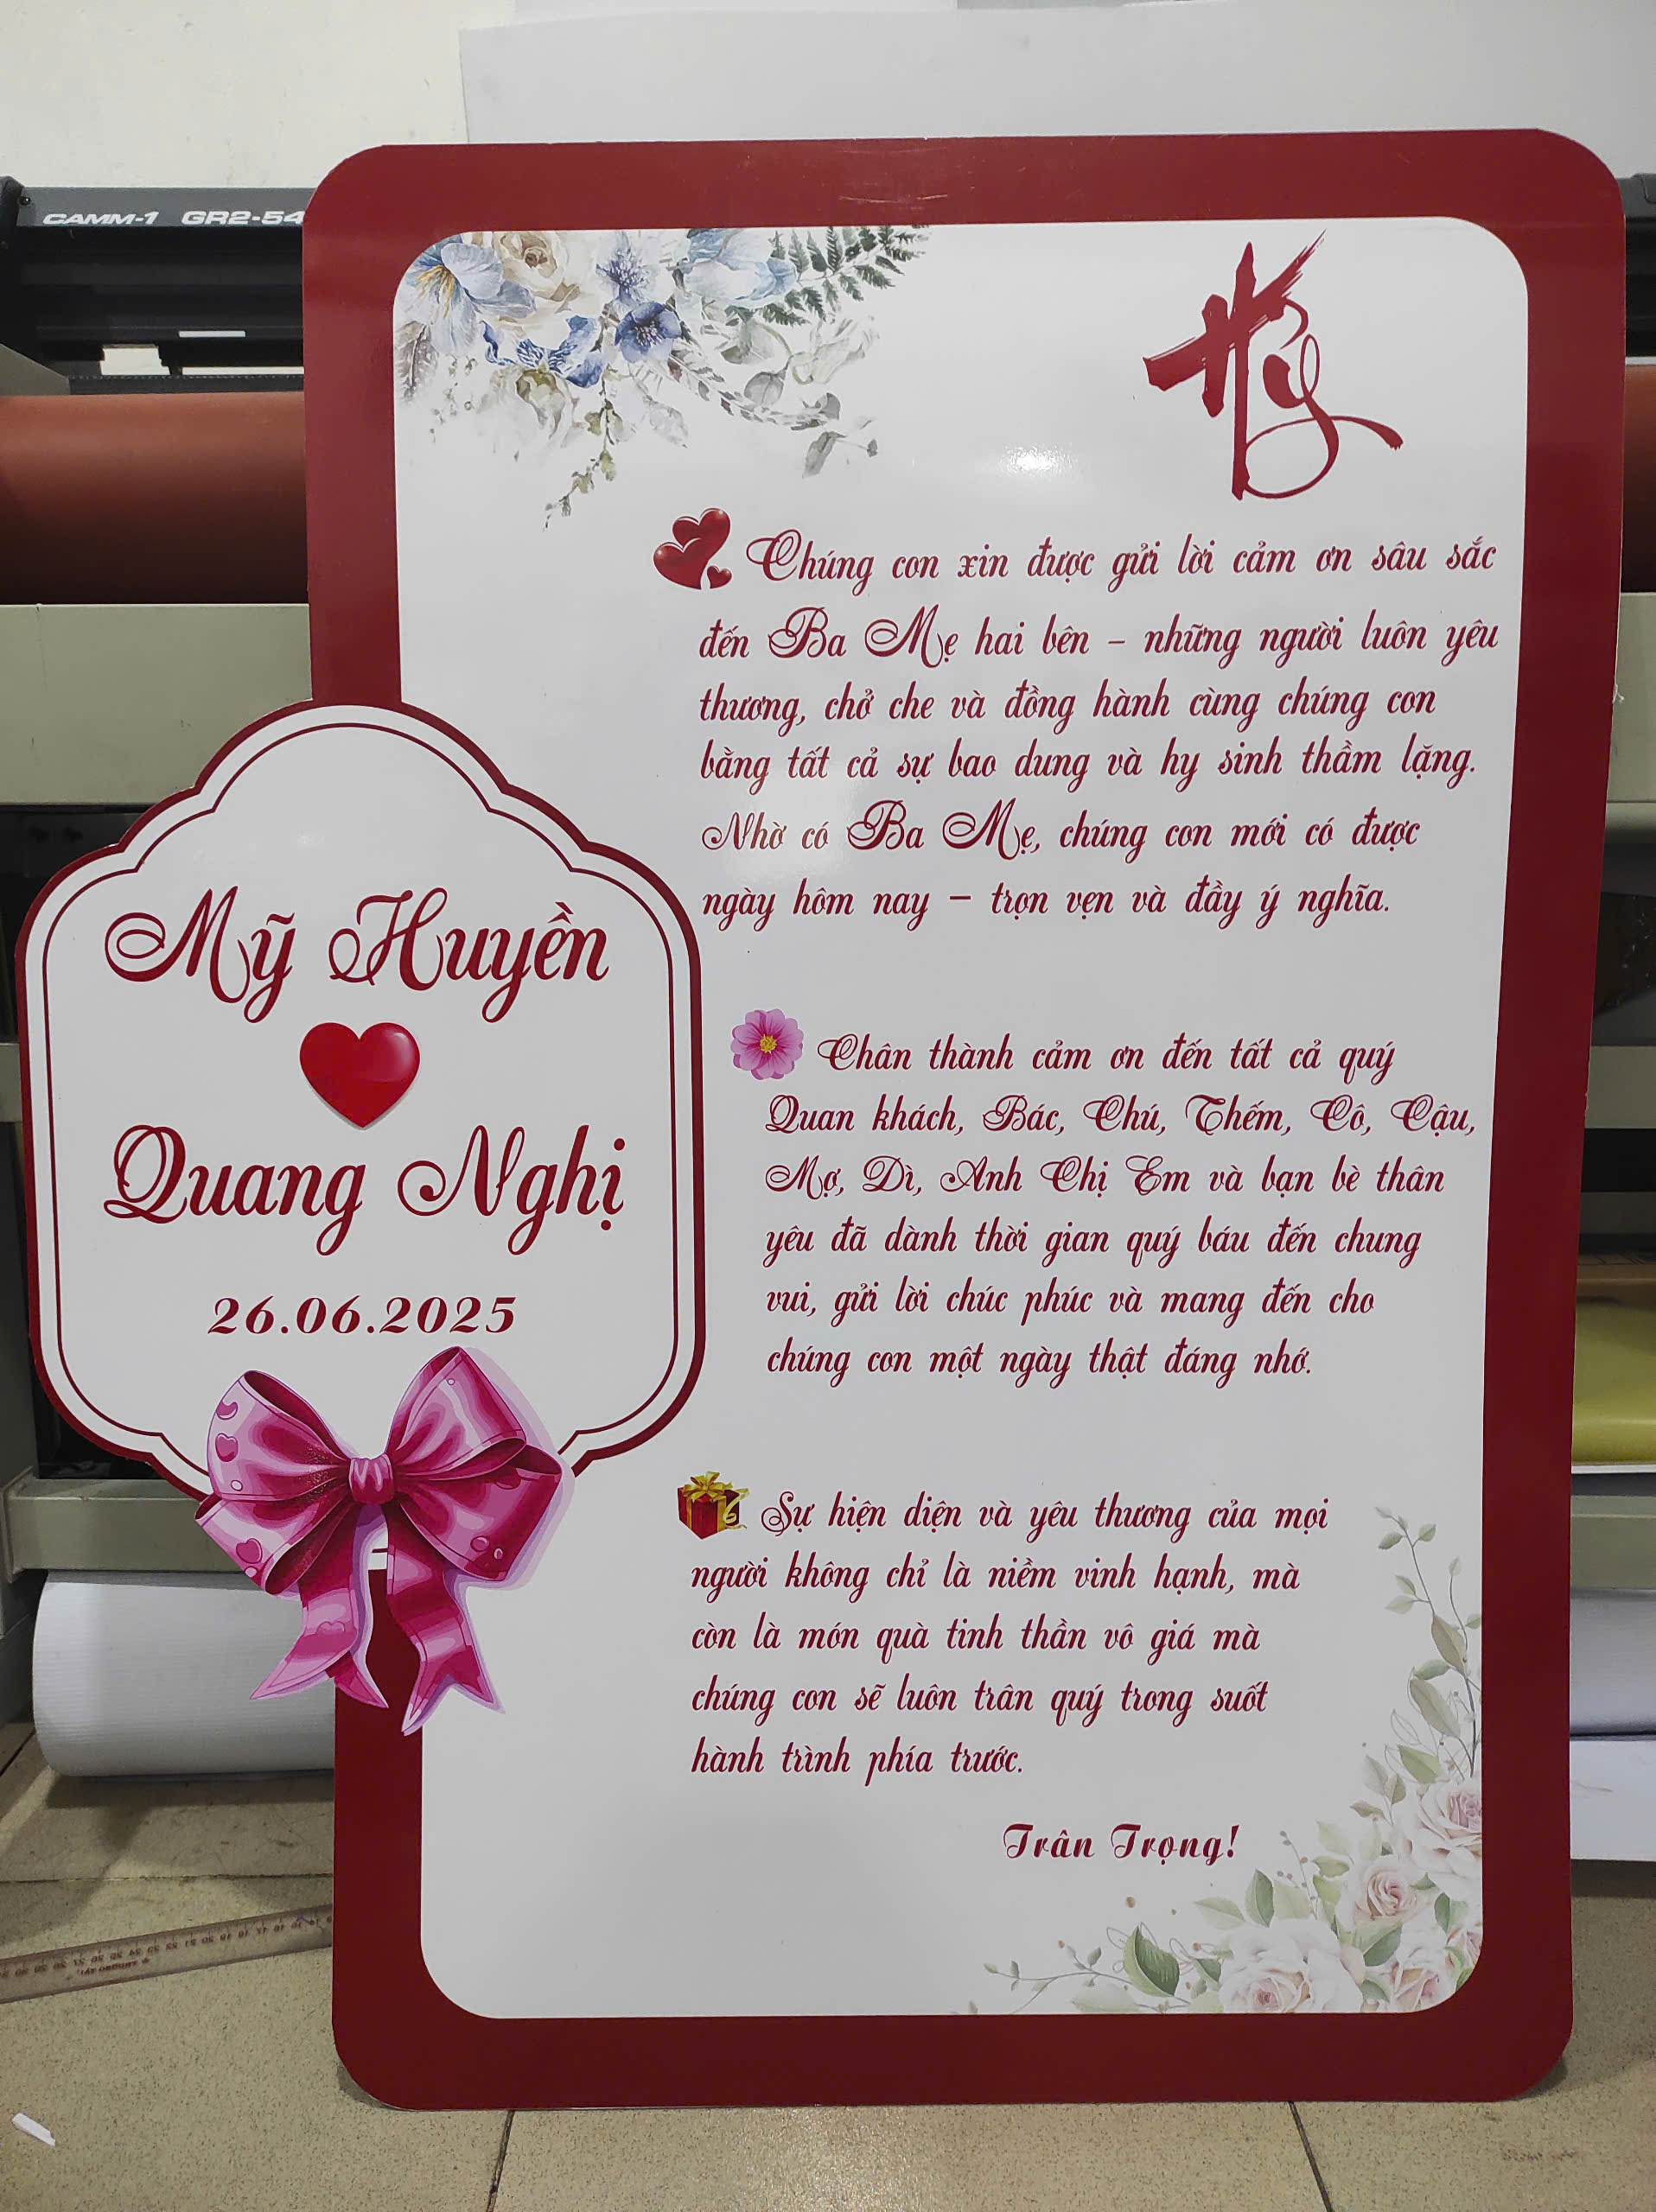 CAMM-1 GR2-54
Hỷ
Chúng con xin được gửi lời cảm ơn sâu sắc
đến Ba Mẹ hai bên – những người luôn yêu
thương, chở che và đồng hành cùng chúng con
bằng tất cả sự bao dung và hy sinh thầm lặng.
Nhờ có Ba Mẹ, chúng con mới có được
ngày hôm nay – trọn vẹn và đầy ý nghĩa.
Mỹ Huyền
Quang Nghị
26.06.2025
Chân thành cảm ơn đến tất cả quý
Quan khách, Bác, Chú, Thếm, Cô, Cậu,
Mợ, Dì, Anh Chị Em và bạn bè thân
yêu đã dành thời gian quý báu đến chung
vui, gửi lời chúc phúc và mang đến cho
chúng con một ngày thật đáng nhớ.
Sự hiện diện và yêu thương của mọi
người không chỉ là niềm vinh hạnh, mà
còn là món quà tinh thần vô giá mà
chúng con sẽ luôn trân quý trong suốt
hành trình phía trước.
Trân Trọng!